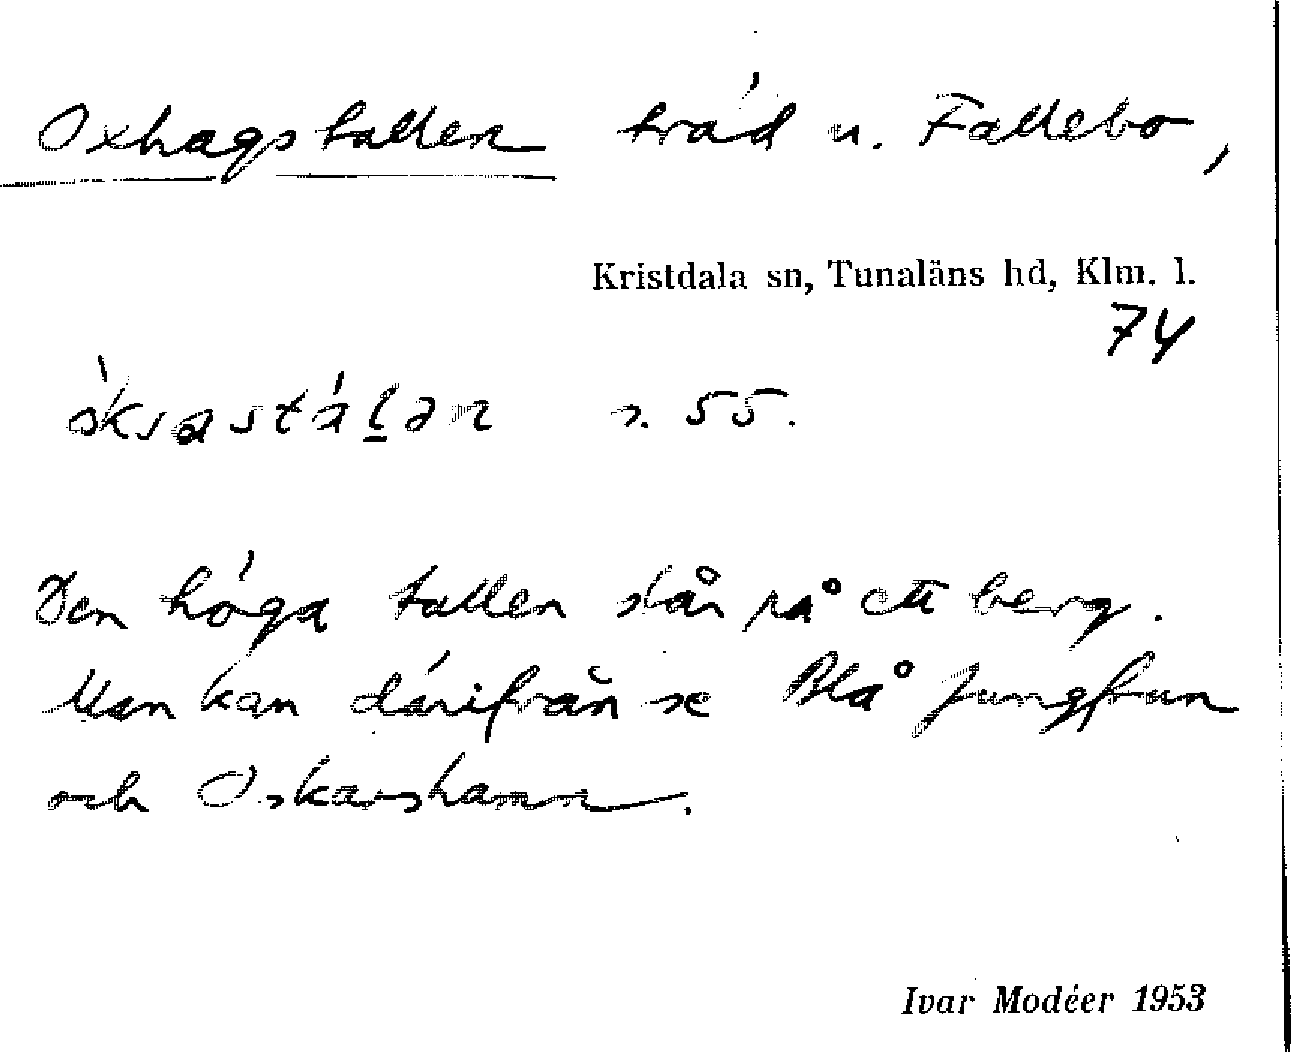 Oxhagstallen träd u. Fallebo,
Kristdala sn, Tunaläns hd, Klm. l.
74
s. 55.
Den höga tallen står på ett berg.
Man kan därifrån se Blå Jungfrun
och Oskarshamn.
Ivar Modéer 1953